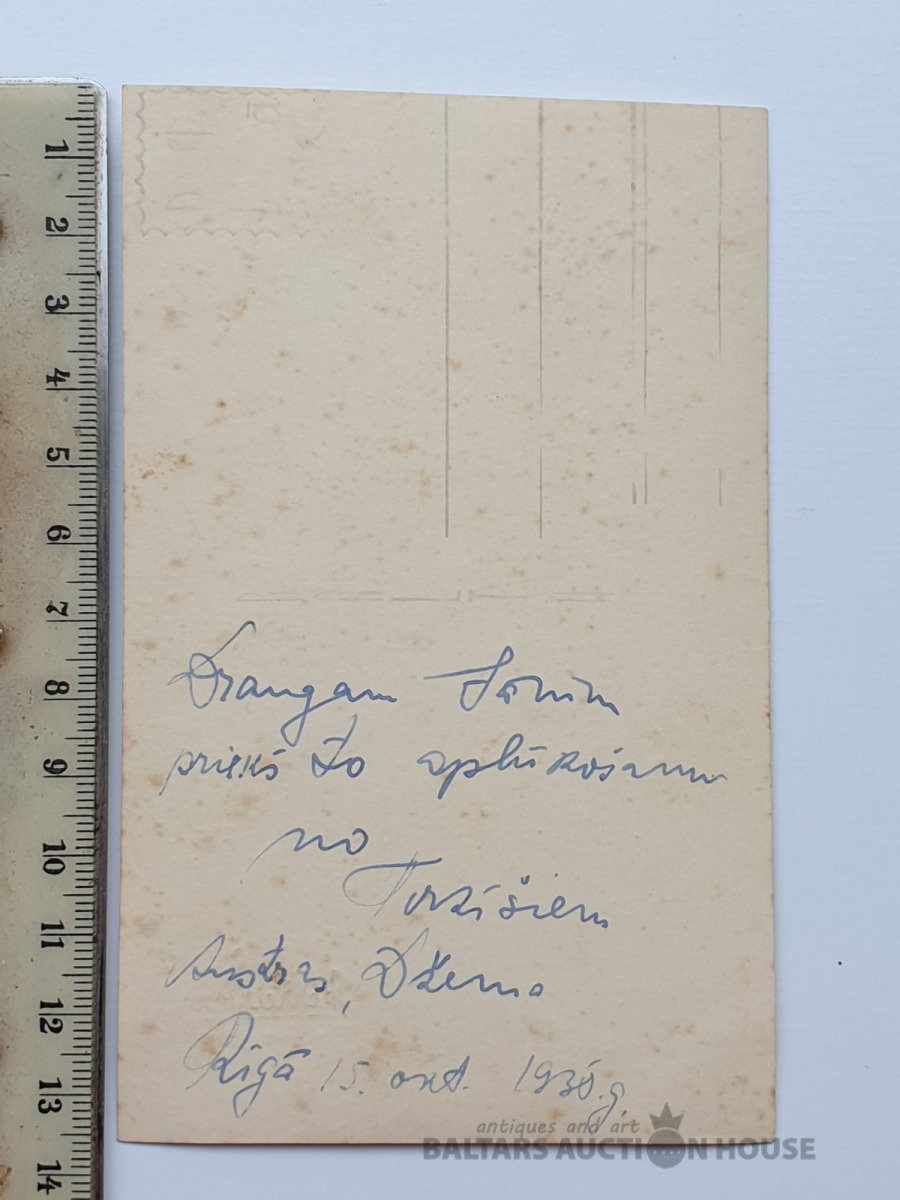 1
2
3
4
5
6
7
8
9
10
11
12
13
14
Draugam
priekš to aplūkošanu
no
Turkišiem
Austras, Džema
Rīgā 15. okt. 1938.g.
antiques and art
BALTARS AUCTION HOUSE